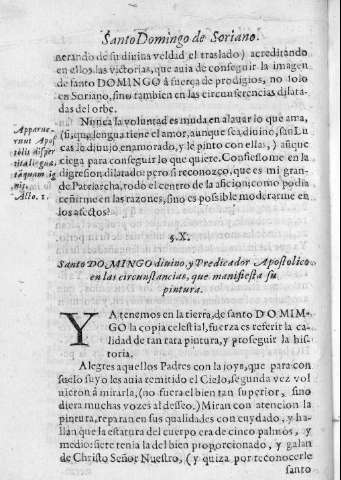 Santo Domingo de Soriano.
nerando de su divina veldad el traslado) acreditando
en ellos las victorias, que auia de conseguir la imagen
de santo DOMINGO à fuerça de prodigios, no solo
en Soriano, sino tambien en las circunferencias dilata-
das del orbe.
Nunca la voluntad es muda en alauar lo que ama,
(si, que lengua tiene el amor, aunque sea diuino, san Lu-
cas lo dibujò enamorado, y le pintò con ellas,) aũque
ciega para conseguir lo que quiere. Confiessome en la
digresion dilatado: pero si reconozco, que es mi gran-
de Patriarcha, todo el centro de la aficion: como podia
ceñirme en las razones, sino es possible moderarme en
los afectos?
Apparue-
runt Apos
tolis disper
titæ linguæ,
tãquam ig
nis.
Acto. 2.
§. X.
Santo DOMINGO diuino, y Predicador Apostolico
en las circunstancias, que manifiesta su
pintura.
YA tenemos en la tierra, de santo DOMIM-
GO la copia celestial, fuerça es referir la ca-
lidad de tan rara pintura, y proseguir la his-
toria.
Alegres aquellos Padres con la joya, que para con
suelo suyo les auia remitido el Cielo, segunda vez vol
uieron à mirarla, (no fuera el bien tan superior, sino
diera muchas vozes al desseo.) Miran con atencion la
pintura, reparan en sus qualidades con cuydado, y ha-
llan que la estatura del cuerpo era de cinco palmos, y
medio: siete tenia la del bien proporcionado, y galan
de Christo Señor Nuestro, (y quiza por reconocerle
santo